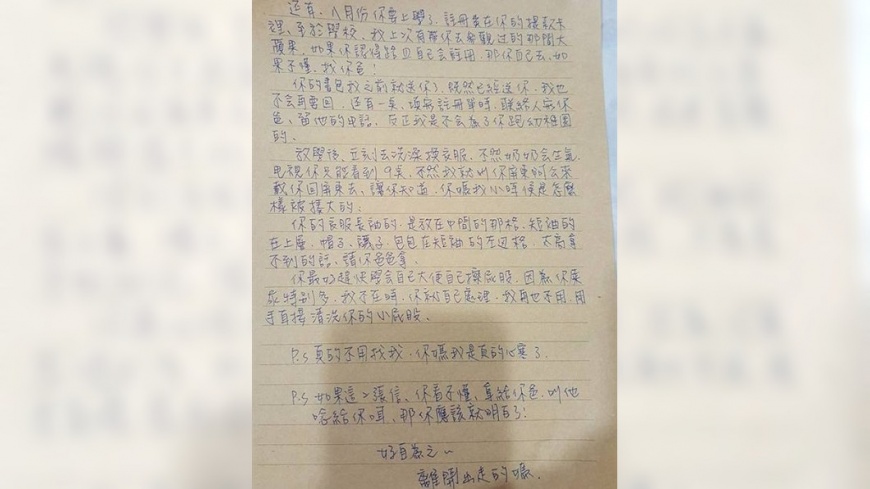 還有，八月份你要上學了，註冊費在你的提款卡
裡，至於學校，我上次有帶你去參觀過的那間大
蘋果，如果你認得路且自己會註冊，那你自己去，如
果不懂，找你爸！
你的書包我之前就送你了，既然已經送你，我也
不會再要回，還有一桌，填寫註冊單時，聯絡人寫你
爸，留他的电話，反正我是不會為了你跑幼稚園
的。
放學後，立刻去洗澡換衣服，不然奶奶会生氣，
电視你只能看到9点，不然我就叫你屏東阿公來
載你回屏東去，讓你知道，你媽我小時候是怎麼
樣被揍大的。
你的衣服長袖的，是放在中間的那格，短袖的
在上層，帽子、襪子、包包在短袖的左边格，太高拿
不到的話，請你爸爸拿。
你最好趕快學会自己大便自己擦屁股，因為你屎
尿特別多，我不在時，你就自己處理，我再也不用，用
手直接清洗你的小屁股。
P.S 真的不用找我，你媽我是真的心寒了。
P.S 如果這2張信，你看不懂，拿給你爸，叫他
唸給你耳，那你應該就明白了！
好自為之~
離開出走的媽.